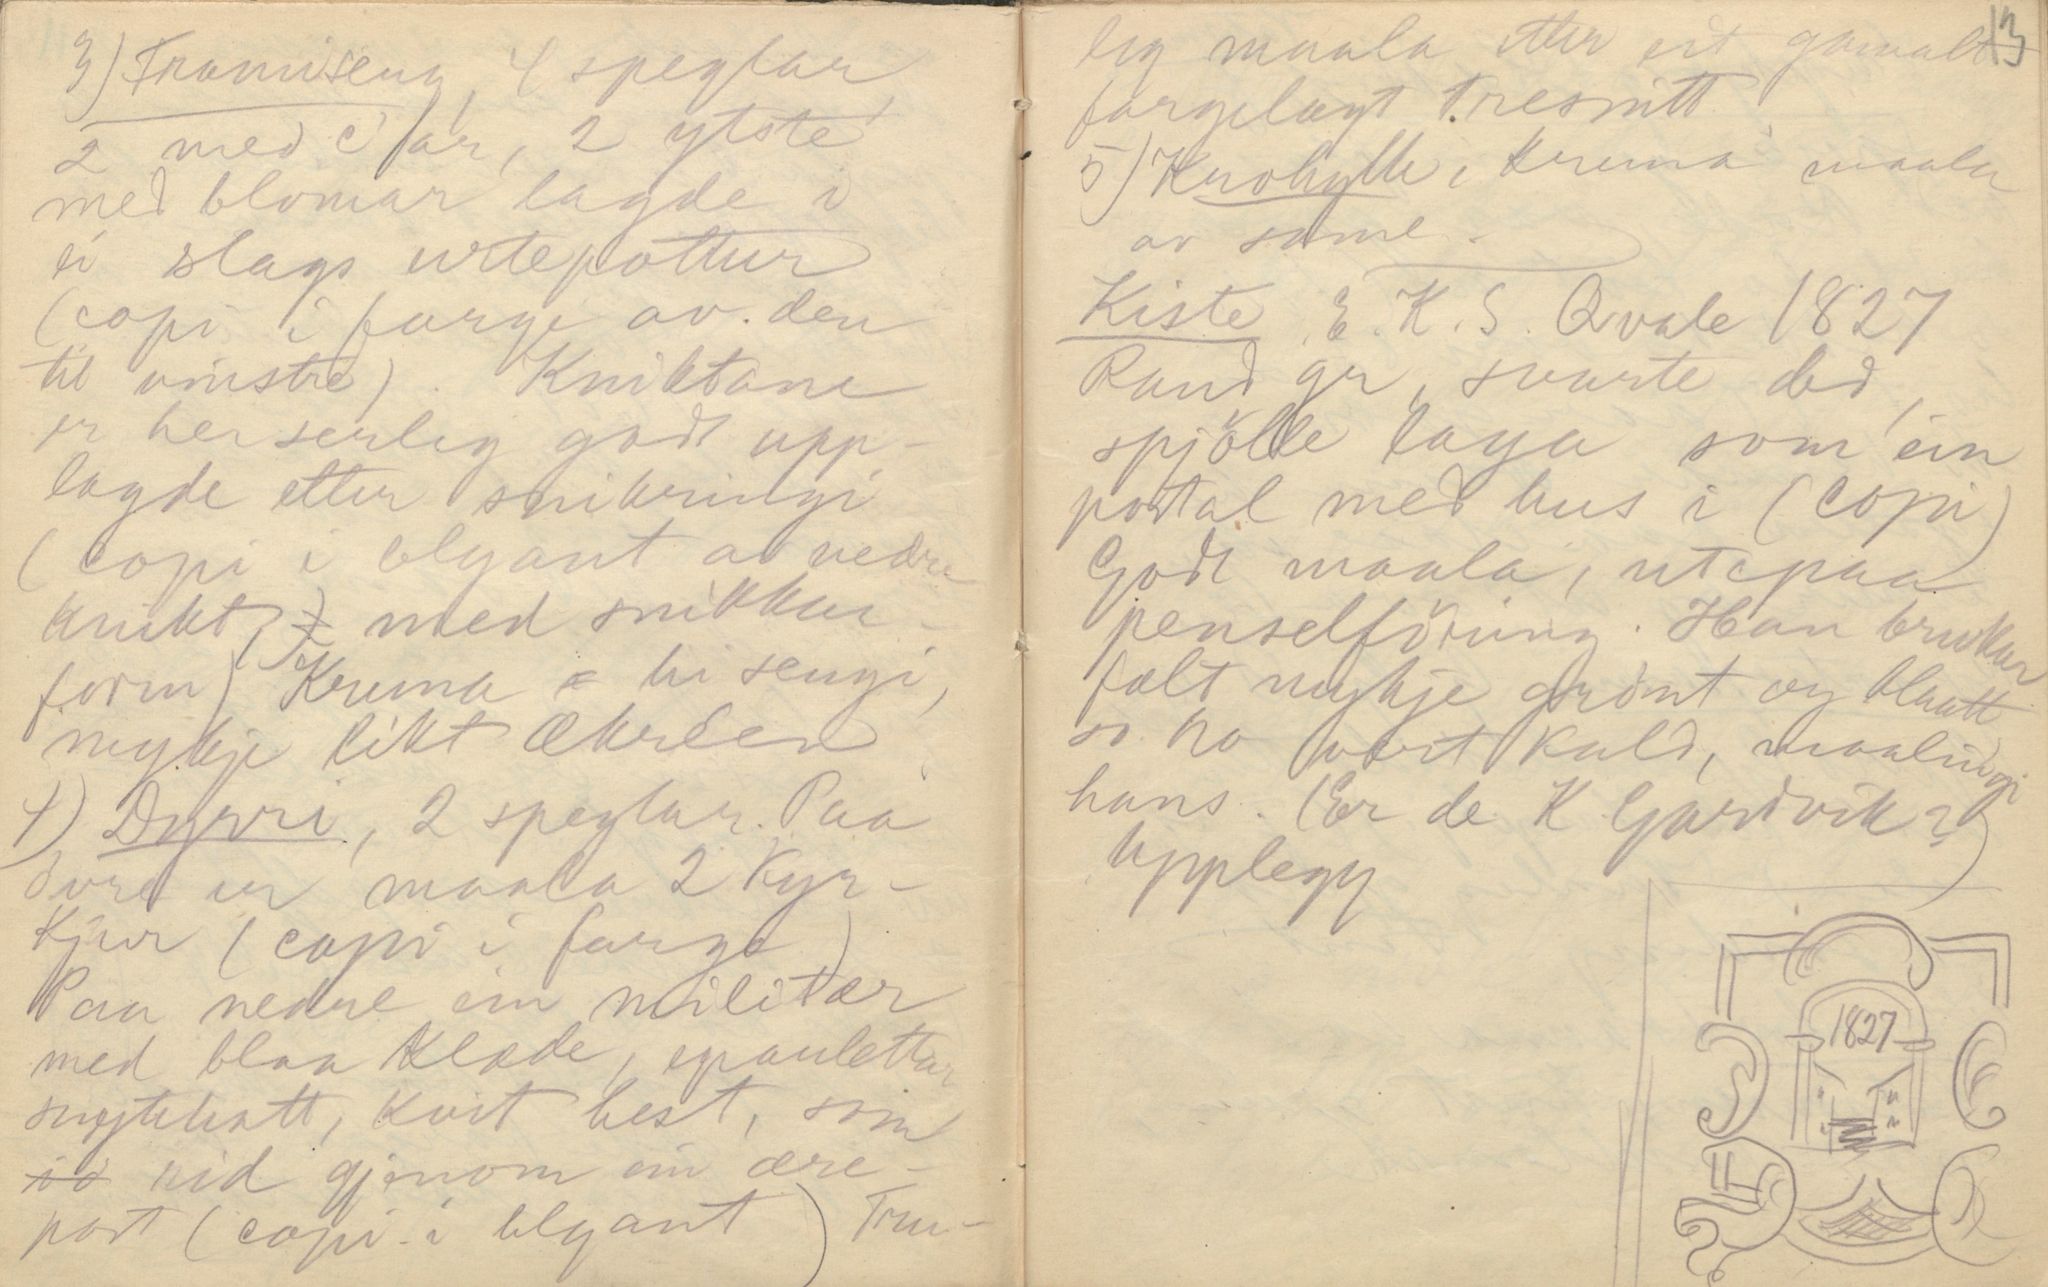 3) Framiseng, 4 speglar,
2 med C'ar, 2 ytste
med blomar lagde i
ei slags urtepottur
(copi i farge av. den
til vinstre). Kniktane
er her serleg godt upp-
lagde etter snikringi
(copi i blyant av nedre
knikt, med snikkar-
form) Kruna hi sengi,
mykje likt Økreen
4) Dyrri, 2 speglar. Paa
övre er maala 2 kyr-
kjur (copi i farge)
Paa nedre ein militær
med blaa klæde, epaulettar
snytehatt, kvit hest, som
rid gjenom ein ære-
port (copi i blyant) Tru-
13
leg maala etter eit gamalt
fargelagt tresnitt.
5) Krohylle, kruna maala
av same.
Kiste E. K. S. Qvale 1827
Rand gr, svarte led,
spjölle laga som ein
portal med hus i (copi)
Godt maala, utepaa
penselföring. Han brukar
fælt mykje grönt og blaatt
so ho vert kald, maalingi
hans. (Er de K. Gardvik?)
Upplegg
1827